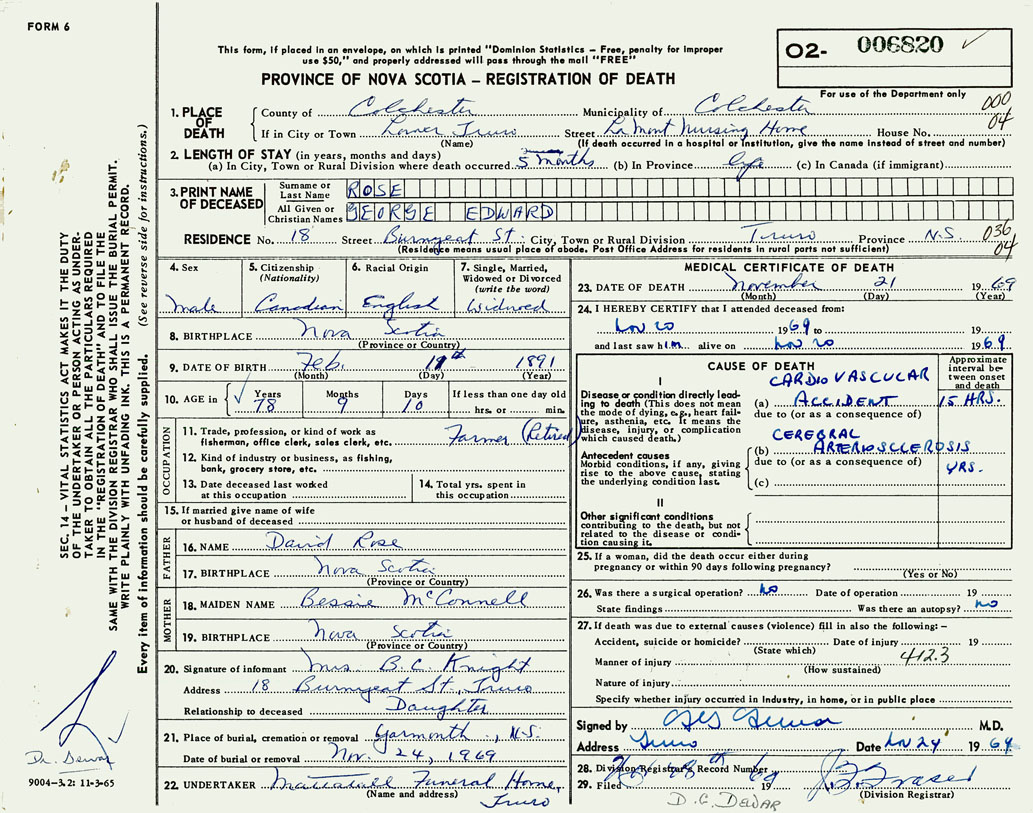 FORM 6
This form, if placed in an envelope, on which is printed "Dominion Statistics – Free, penalty for improper
use $50," and properly addressed will pass through the mail "FREE"
PROVINCE OF NOVA SCOTIA – REGISTRATION OF DEATH
O2- 006820
For use of the Department only
000
04
1. PLACE OF DEATH
County of Colchester Municipality of Colchester
If in City or Town Lower Truro Street La Mont Nursing Home House No.
(Name) (If death occurred in a hospital or Institution, give the name instead of street and number)
2. LENGTH OF STAY (in years, months and days)
(a) In City, Town or Rural Division where death occurred 5 months (b) In Province life (c) In Canada (if immigrant)
3. PRINT NAME OF DECEASED
Surname or Last Name ROSE
All Given or Christian Names GEORGE EDWARD
RESIDENCE No. 18 Street Burnyeat St. City, Town or Rural Division Truro Province N.S.
(Residence means usual place of abode. Post Office Address for residents in rural parts not sufficient)
036
04
4. Sex
male
5. Citizenship
(Nationality)
Canadian
6. Racial Origin
English
7. Single, Married,
Widowed or Divorced
(write the word)
Widowed
8. BIRTHPLACE Nova Scotia
(Province or Country)
9. DATE OF BIRTH Feb. 11th 1891
(Month) (Day) (Year)
10. AGE in
Years Months Days If less than one day old
78 9 10 hrs. or min.
OCCUPATION
11. Trade, profession, or kind of work as
fisherman, office clerk, sales clerk, etc. Farmer (Retired)
12. Kind of industry or business, as fishing,
bank, grocery store, etc.
13. Date deceased last worked
at this occupation
14. Total yrs. spent in
this occupation
15. If married give name of wife
or husband of deceased
FATHER
16. NAME David Rose
17. BIRTHPLACE Nova Scotia
(Province or Country)
MOTHER
18. MAIDEN NAME Bessie McConnell
19. BIRTHPLACE Nova Scotia
(Province or Country)
20. Signature of informant Mrs B.C. Knight
Address 18 Burnyeat St., Truro
Relationship to deceased Daughter
21. Place of burial, cremation or removal Yarmouth, N.S.
Date of burial or removal Nov. 24, 1969
22. UNDERTAKER Mattatall Funeral Home,
(Name and address) Truro
MEDICAL CERTIFICATE OF DEATH
23. DATE OF DEATH November 21 1969
(Month) (Day) (Year)
24. I HEREBY CERTIFY that I attended deceased from:
Nov 20 1969 to 19
and last saw him alive on Nov 20 1969
CAUSE OF DEATH
Approximate interval between onset and death
I
Disease or condition directly leading to death (This does not mean the mode of dying, e.g., heart failure, asthenia, etc. It means the disease, injury, or complication which caused death.)
CARDIO VASCULAR
(a) ACCIDENT 15 HRS.
due to (or as a consequence of)
CEREBRAL
Antecedent causes
Morbid conditions, if any, giving rise to the above cause, stating the underlying condition last.
(b) ARTERIOSCLEROSIS
due to (or as a consequence of) YRS.
(c)
II
Other significant conditions
contributing to the death, but not
related to the disease or condition causing it.
25. If a woman, did the death occur either during
pregnancy or within 90 days following pregnancy?
(Yes or No)
26. Was there a surgical operation? No Date of operation 19
State findings Was there an autopsy? no
27. If death was due to external causes (violence) fill in also the following: –
Accident, suicide or homicide? Date of injury 19
(State which)
412.3
Manner of injury
(How sustained)
Nature of injury
Specify whether injury occurred in Industry, in home, or in public place
Signed by M.D.
Address Truro Date Nov 24 1969
28. Division Registrar's Record Number
29. Filed 19
(Division Registrar)
D.G. DEWAR
SEC. 14 – VITAL STATISTICS ACT MAKES IT THE DUTY
OF THE UNDERTAKER OR PERSON ACTING AS UNDER-
TAKER TO OBTAIN ALL THE PARTICULARS REQUIRED
IN THE "REGISTRATION OF DEATH" AND TO FILE THE
SAME WITH THE DIVISION REGISTRAR WHO SHALL ISSUE THE BURIAL PERMIT.
WRITE PLAINLY WITH UNFADING INK. THIS IS A PERMANENT RECORD.
Every item of information should be carefully supplied. (See reverse side for instructions.)
Dr. Dewar
9004-3.21 11-3-65